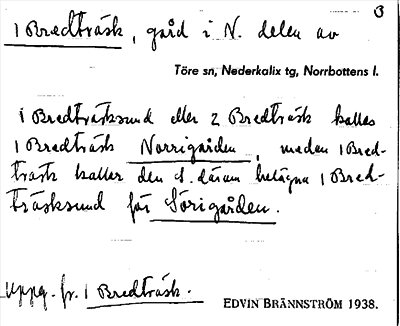 3
1 Bredträsk, gård i N. delen av
Töre sn, Nederkalix tg, Norrbottens l.
I Bredträsksund eller 2 Bredträsk kallas
1 Bredträsk Norrigården, medan 1 Bred-
träsk kallar den s. därom belägna 1 Bred-
träsksund för Sörigården.
Uppg. fr. 1 Bredträsk.
EDVIN BRÄNNSTRÖM 1938.